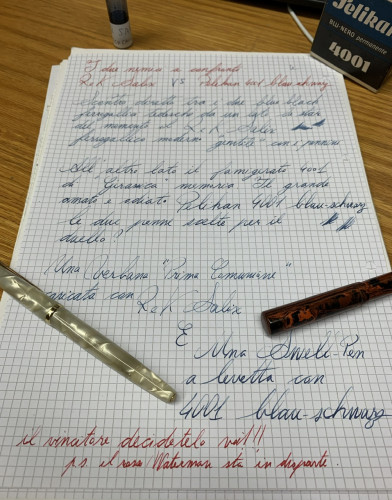 Pelikan
BLU-NERO permanente
4001
I due nemici a confronto
R&K Salix VS Pelikan 4001 blau-schwarz
Scontro diretto tra i due blue black
ferrogallico tedeschi da un lato la star
del momento il R&K Salix
ferrogallico moderno "gentile" con i pennini
All'altro lato il famigerato 4001
di Giramica memoria Il grande
amato e odiato Pelikan 4001 blau-schwarz
le due penne scelte per il
duello?
Una Verbana "Prima Comunione"
caricata con R&K Salix
E
Una Swell-Pen
a levetta con
4001 blau-schwarz
il vincitore decidetelo voi!!
ps. il rosso Waterman sta in disparte.